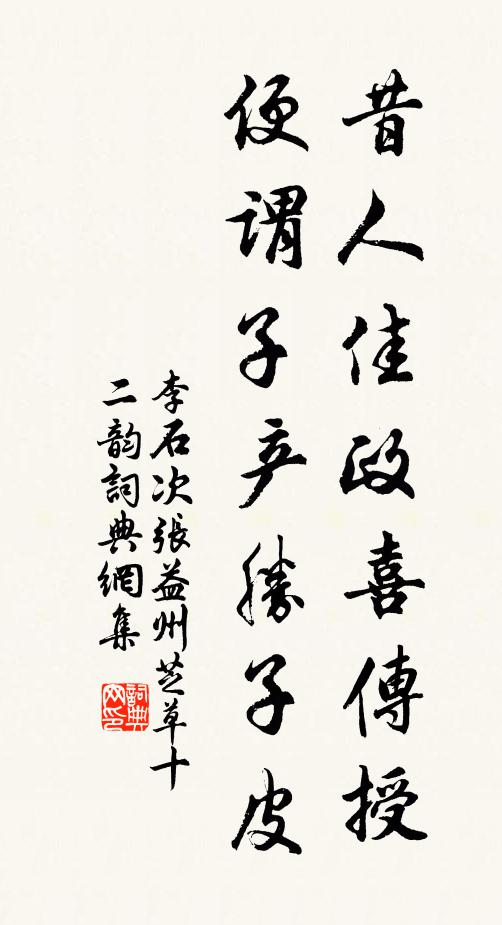 昔人佳政喜傳授
便謂子产勝子皮
李石次張益州芝草十
二韵詞典網集
詞典网印